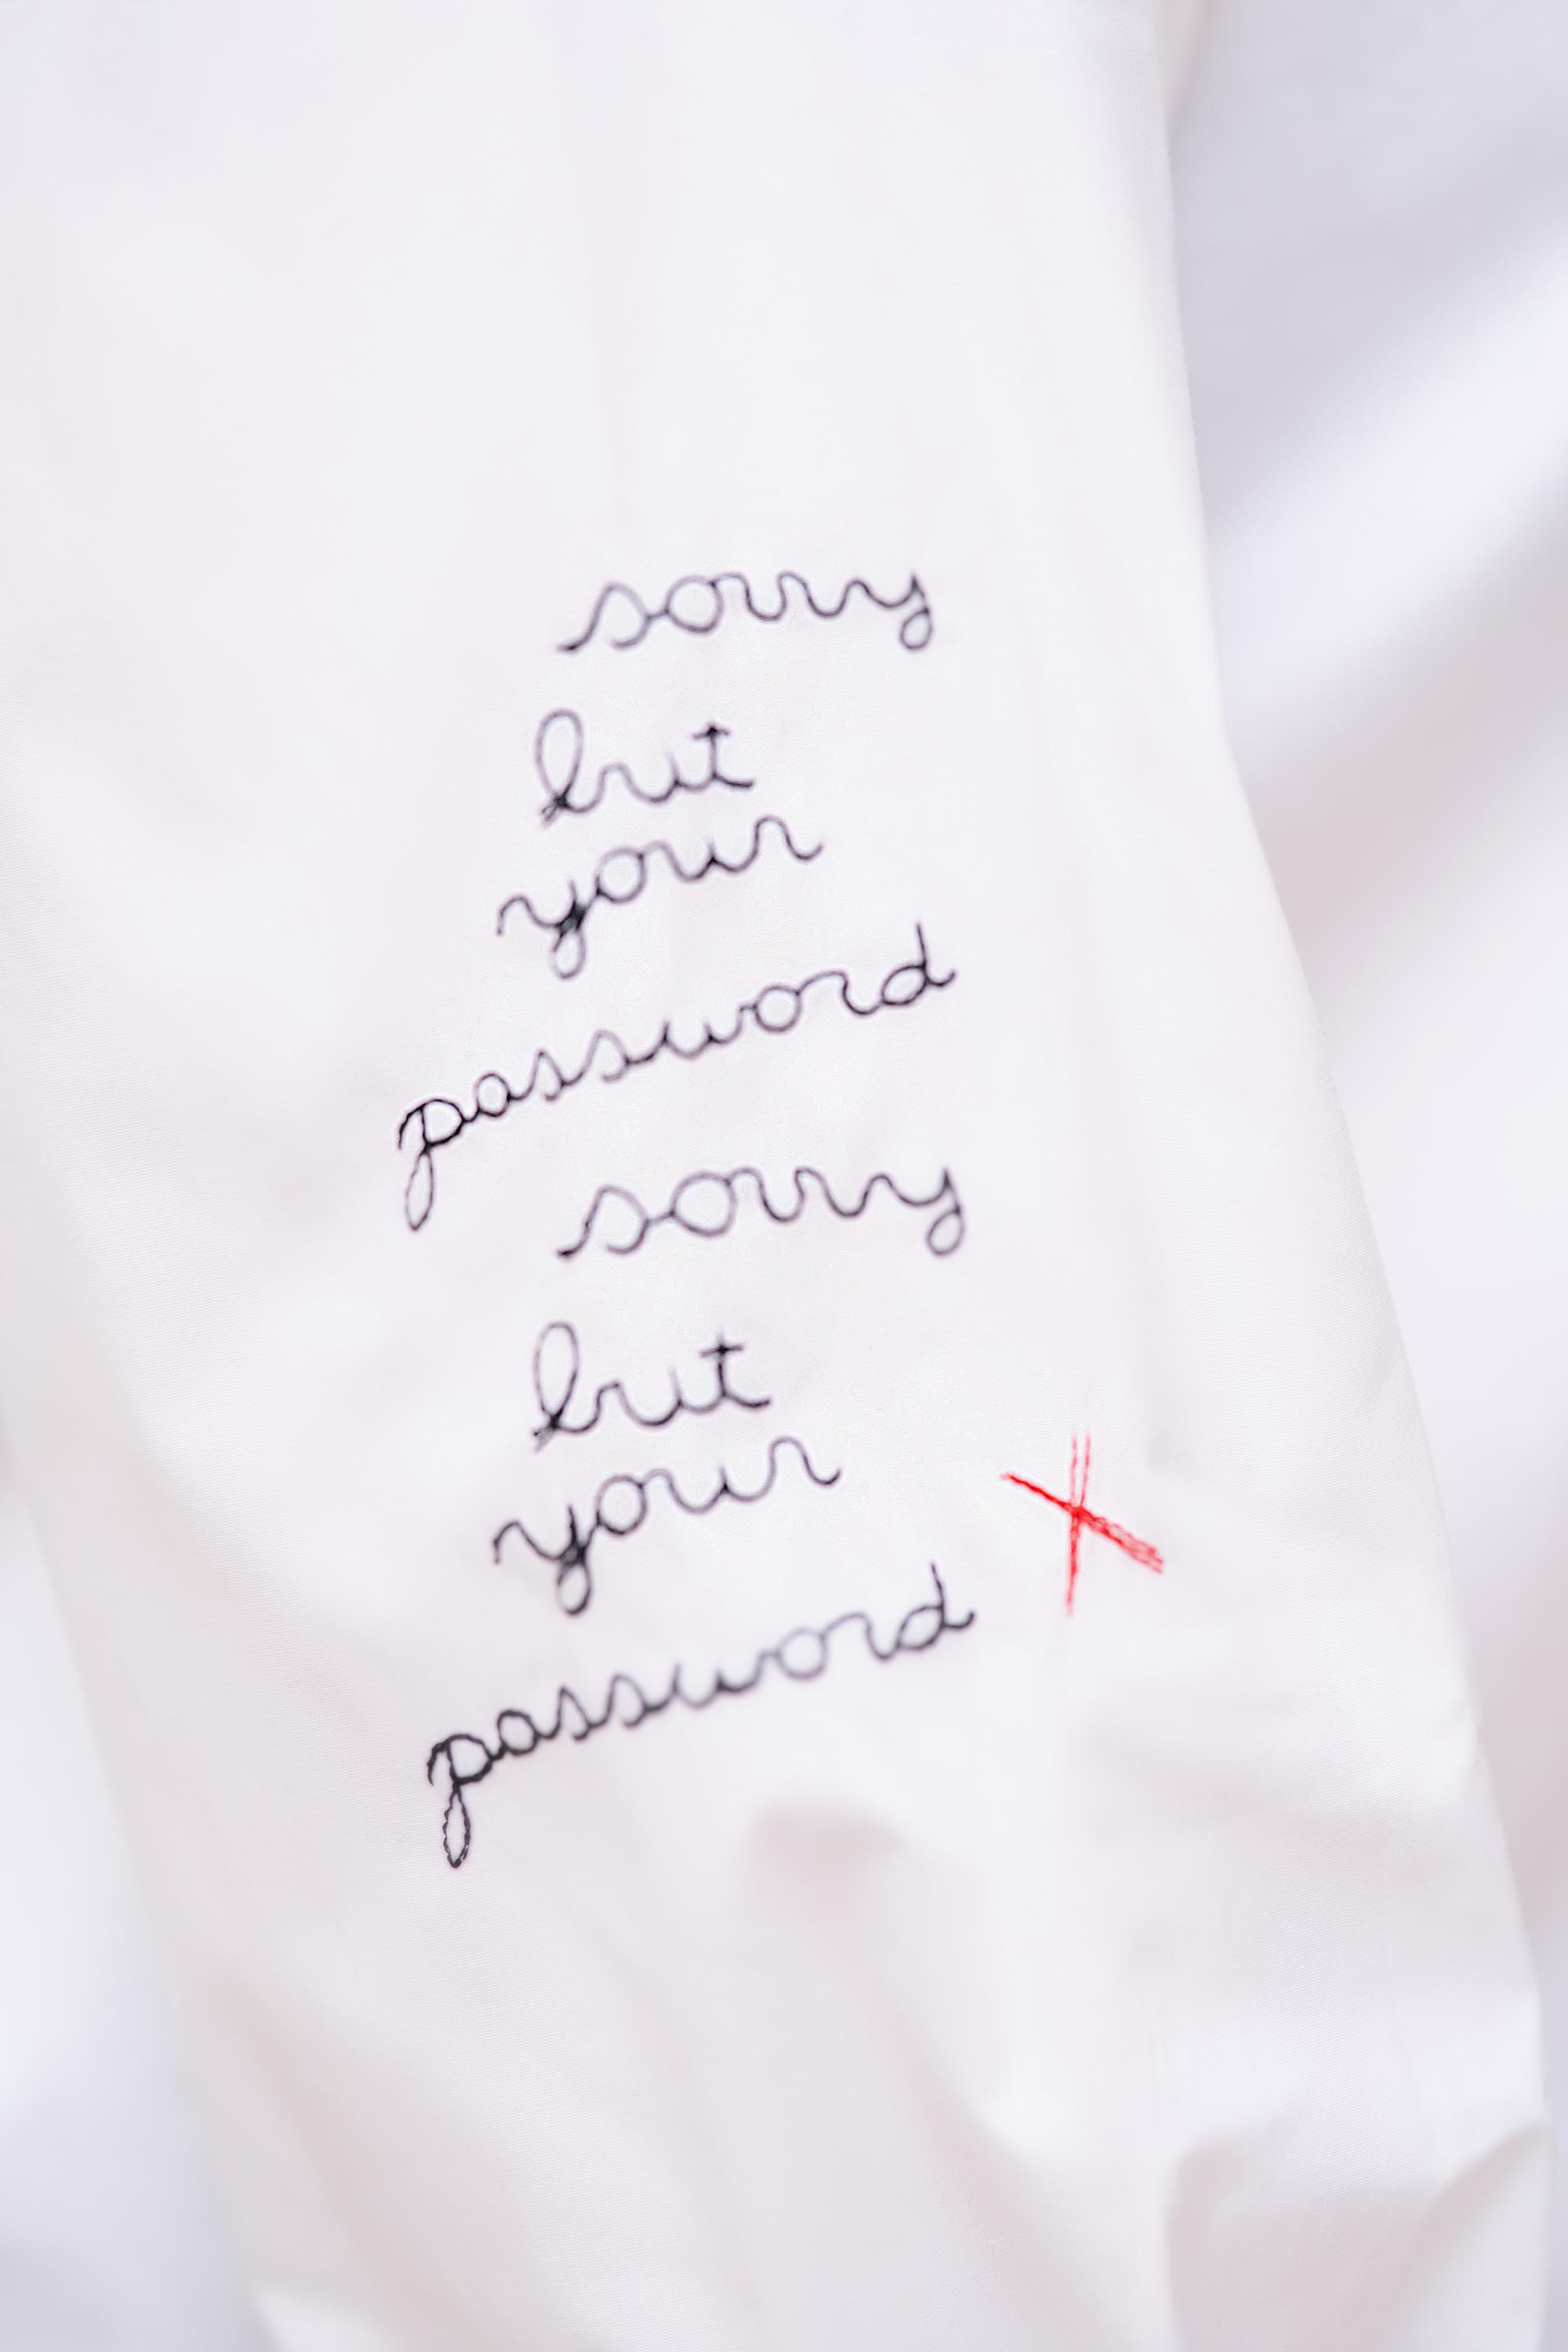 sorry
but
your
password
sorry
but
your
X
password